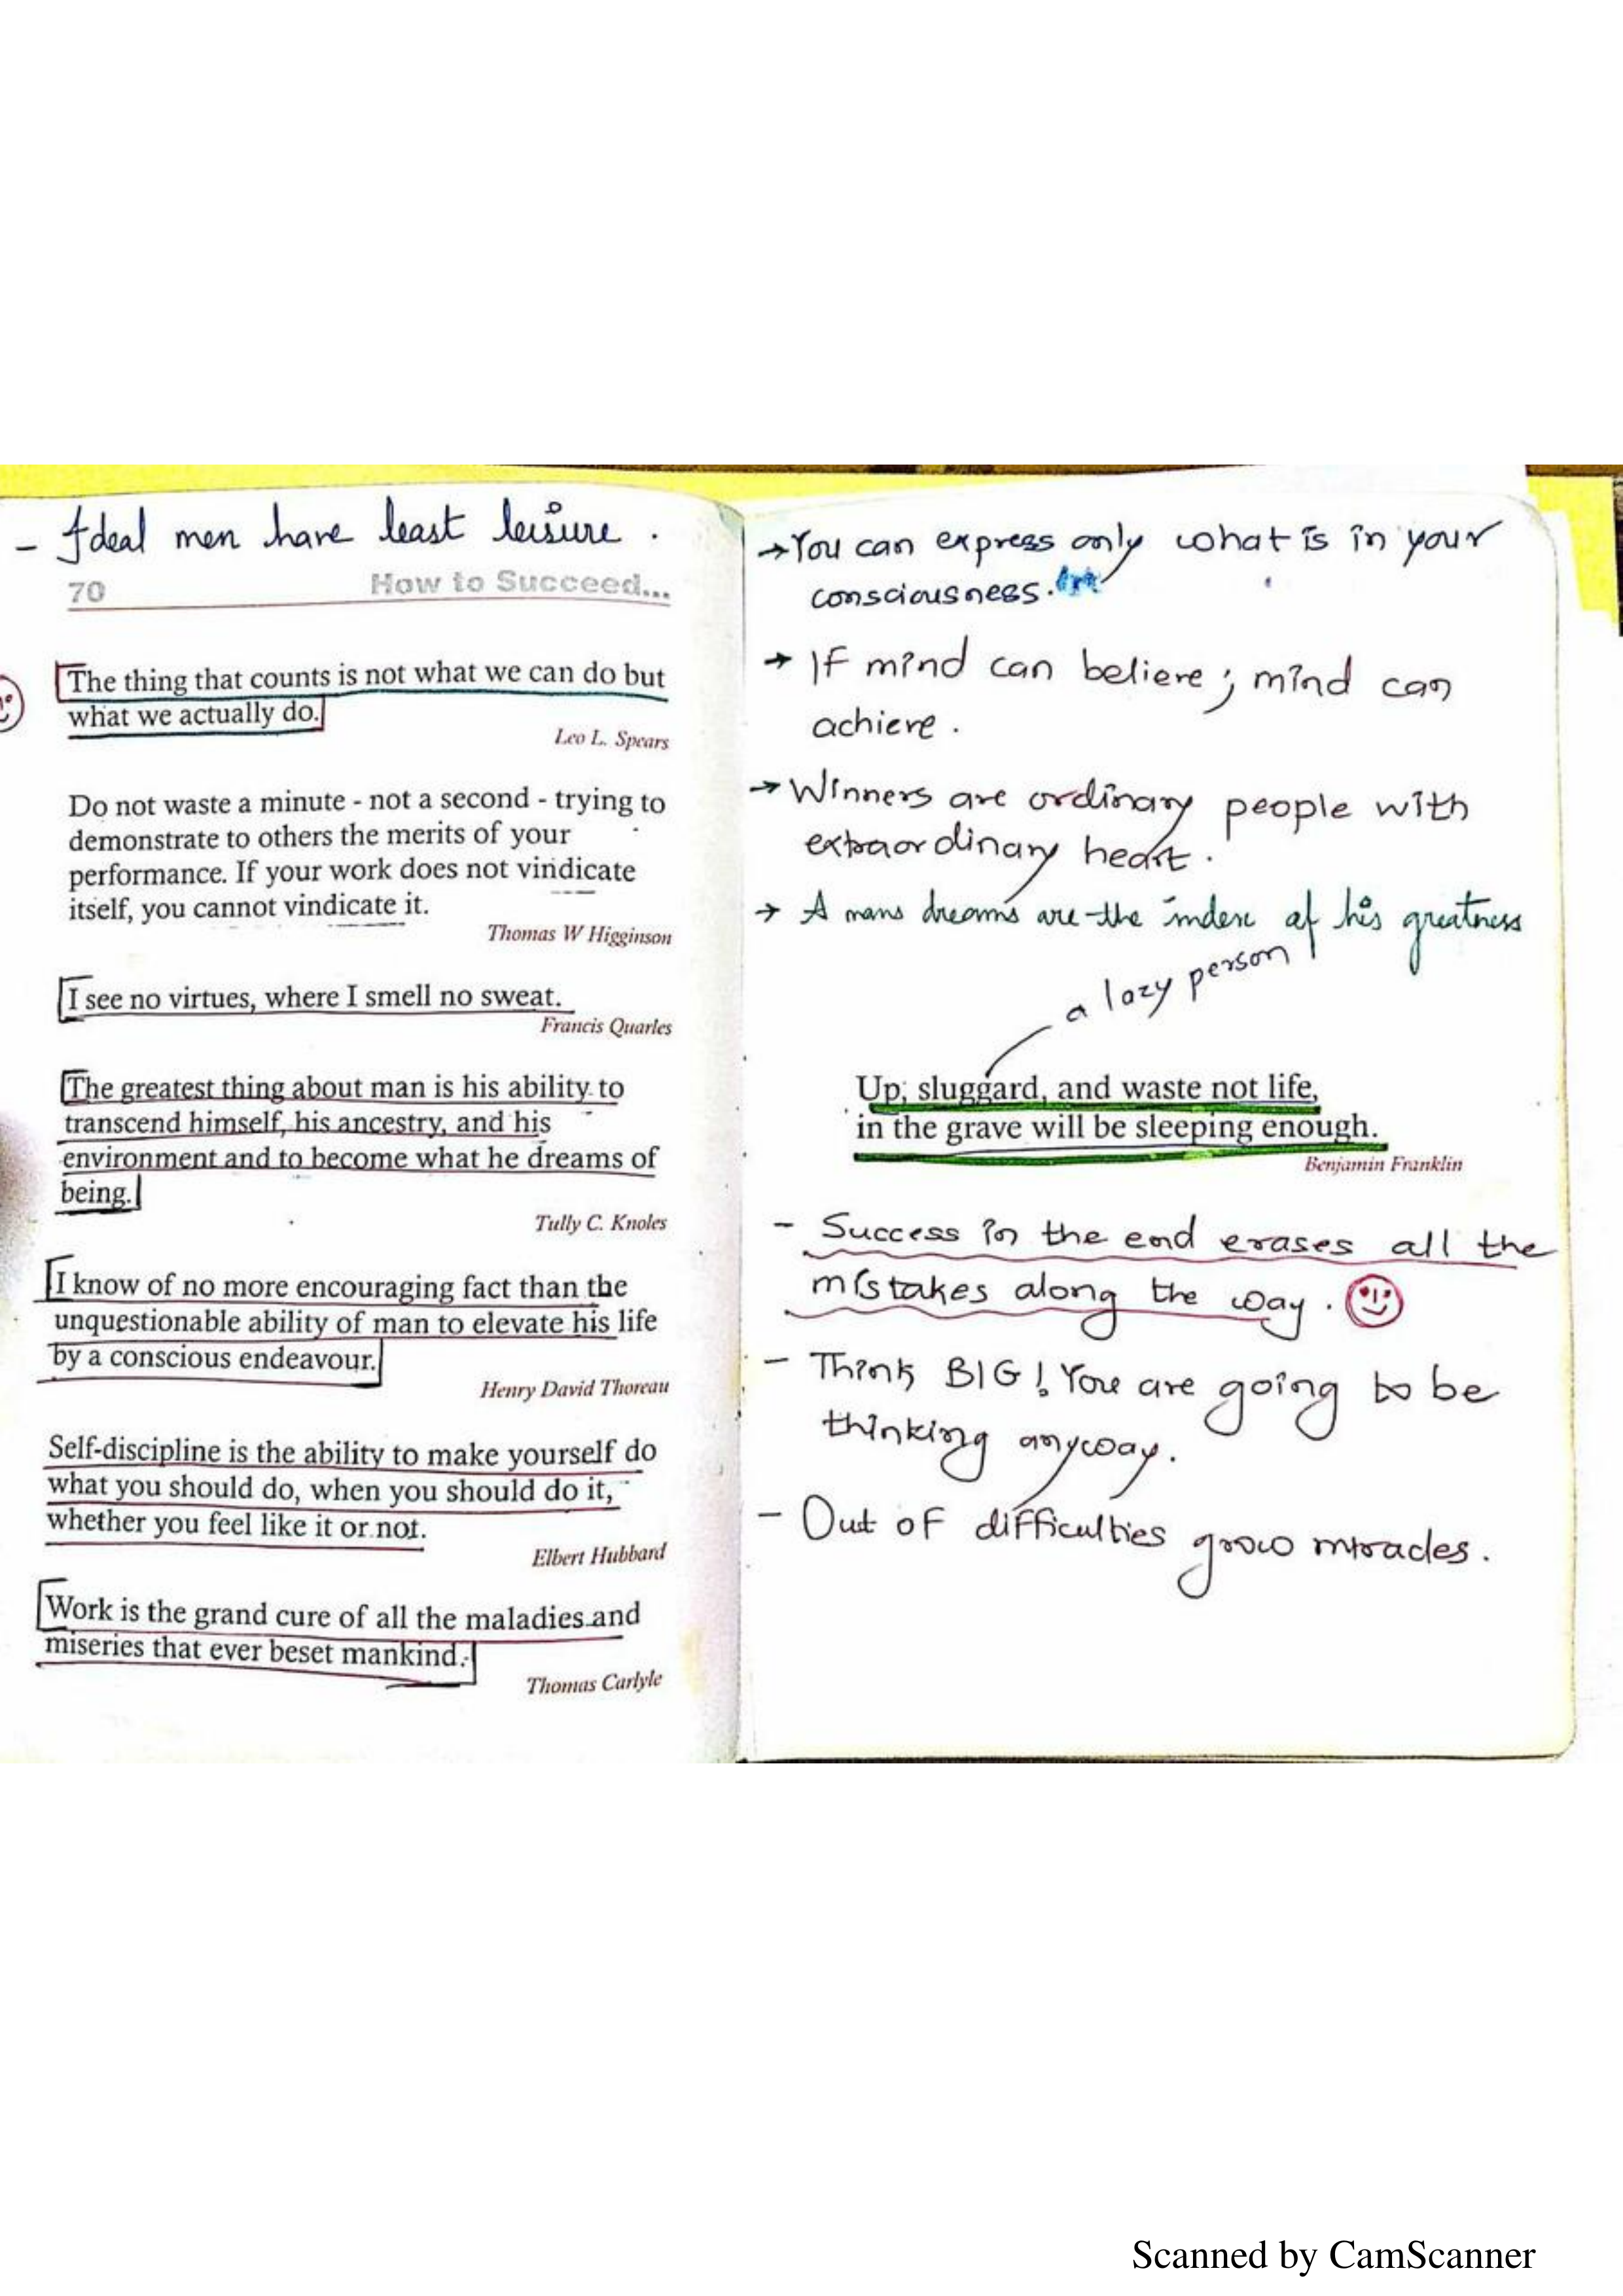 - Ideal men have least leisure.
70 How to Succeed...
The thing that counts is not what we can do but
what we actually do.
Leo L. Spears
Do not waste a minute - not a second - trying to
demonstrate to others the merits of your
performance. If your work does not vindicate
itself, you cannot vindicate it.
Thomas W Higginson
I see no virtues, where I smell no sweat.
Francis Quarles
The greatest thing about man is his ability to
transcend himself, his ancestry, and his
environment and to become what he dreams of
being.
Tully C. Knoles
I know of no more encouraging fact than the
unquestionable ability of man to elevate his life
by a conscious endeavour.
Henry David Thoreau
Self-discipline is the ability to make yourself do
what you should do, when you should do it,
whether you feel like it or not.
Elbert Hubbard
Work is the grand cure of all the maladies and
miseries that ever beset mankind.
Thomas Carlyle
→ You can express only what is in your
consciousness.
→ If mind can believe; mind can
achieve.
→ Winners are ordinary people with
extraordinary heart.
→ A mans dreams are the index of his greatness
a lazy person
Up, sluggard, and waste not life,
in the grave will be sleeping enough.
Benjamin Franklin
- Success in the end erases all the
mistakes along the way.
- Think BIG! You are going to be
thinking anyway.
- Out of difficulties grow miracles.
Scanned by CamScanner